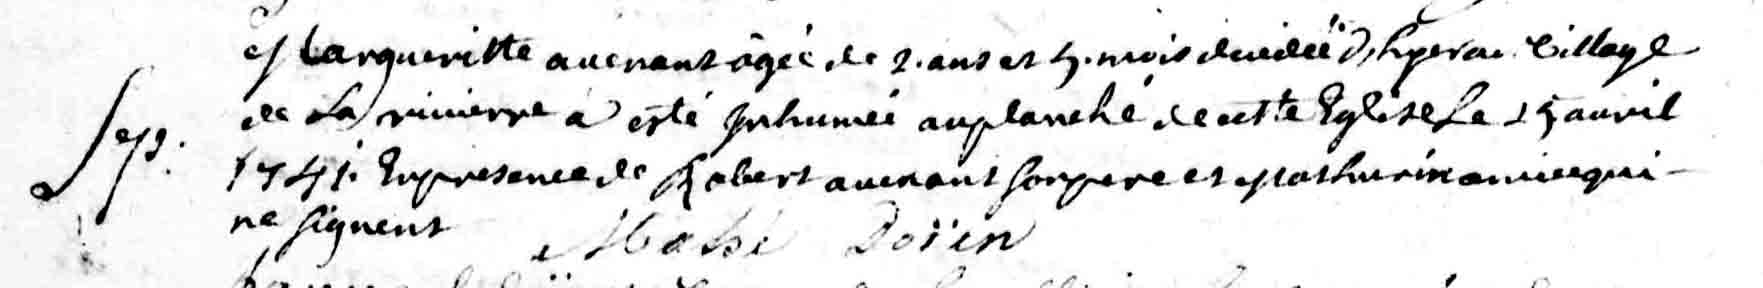 Margueritte auenant âgée de 2. ans et 5. mois décédée d'hyer au Village
Sep. de La rivierre a esté Inhumée au planché de cette Eglise Le 15 auril
1741. En presence de Robert auenant son pere et Mathurin amice qui
ne signent Mahé Doïen